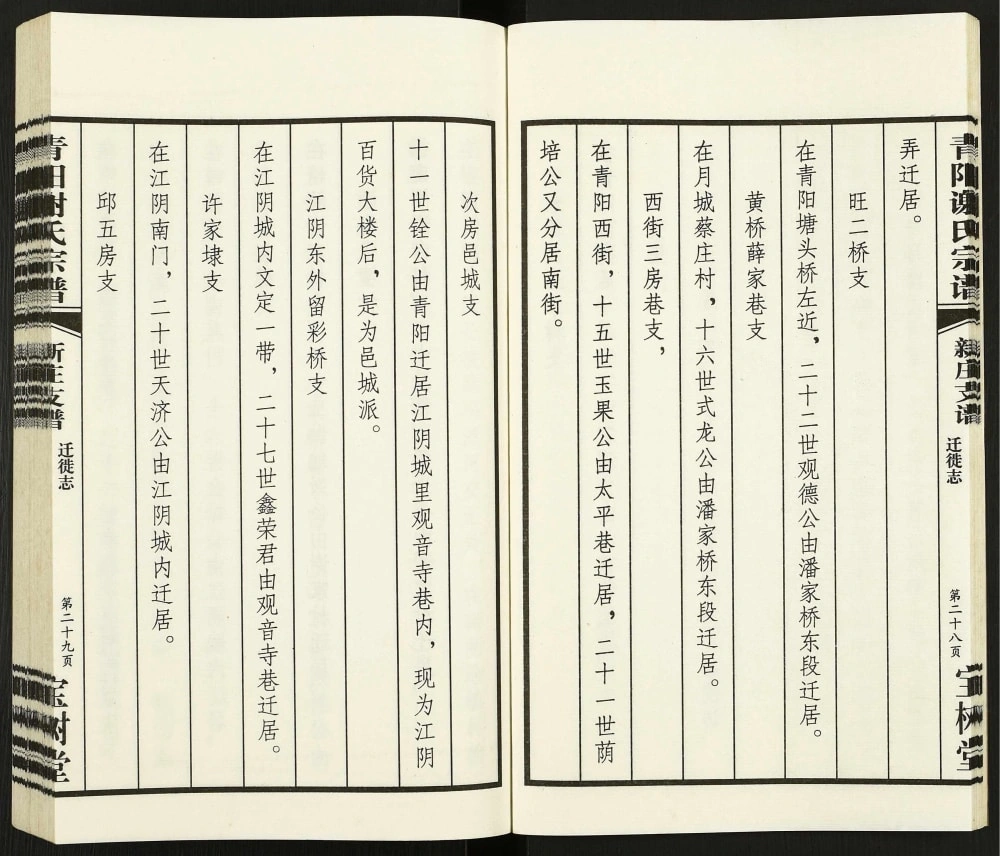 青阳谢氏宗谱
新庄支谱
迁徙志
第二十八页
宝树堂
弄迁居。
旺二桥支
在青阳塘头桥左近，二十二世观德公由潘家桥东段迁居。
黄桥薛家巷支
在月城蔡庄村，十六世式龙公由潘家桥东段迁居。
西街三房巷支，
在青阳西街，十五世玉果公由太平巷迁居，二十一世荫
培公又分居南街。
次房邑城支
十一世铨公由青阳迁居江阴城里观音寺巷内，现为江阴
百货大楼后，是为邑城派。
江阴东外留彩桥支
在江阴城内文定一带，二十七世鑫荣君由观音寺巷迁居。
许家埭支
在江阴南门，二十世天济公由江阴城内迁居。
邱五房支
青阳谢氏宗谱
新庄支谱
迁徙志
第二十九页
宝树堂